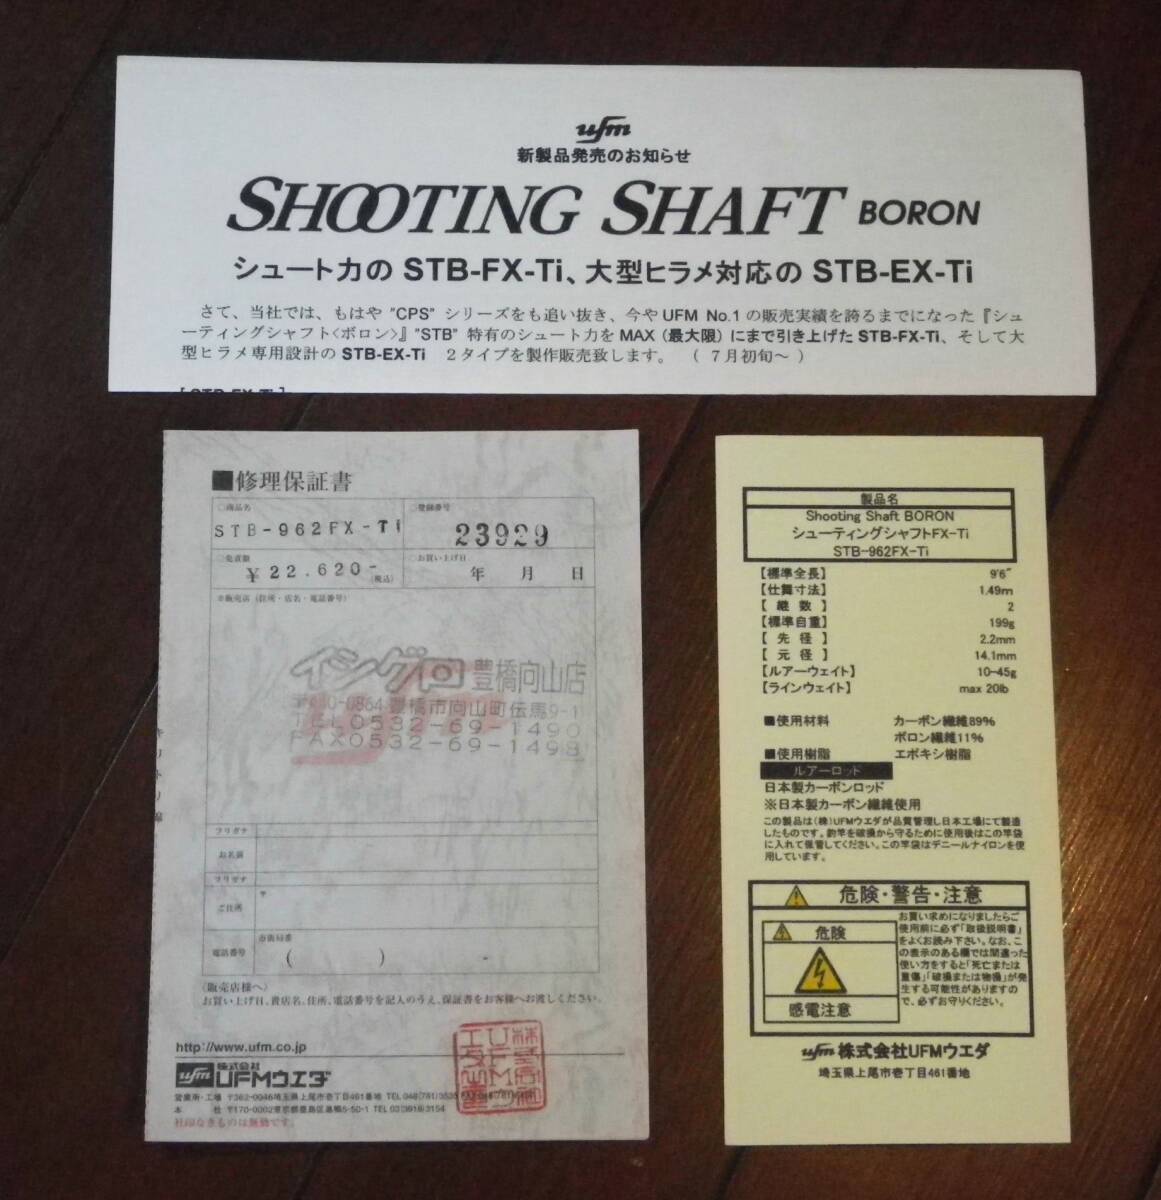 ufm
新製品発売のお知らせ
SHOOTING SHAFT BORON
シュート力の STB-FX-Ti、大型ヒラメ対応の STB-EX-Ti
さて、当社では、もはや "CPS" シリーズをも追い抜き、今や UFM No.1 の販売実績を誇るまでになった『シュ
ーティングシャフト<ボロン>』"STB" 特有のシュート力を MAX（最大限）にまで引き上げた STB-FX-Ti、そして大
型ヒラメ専用設計の STB-EX-Ti 2タイプを製作販売致します。 （7月初旬～）
■修理保証書
○商品名
STB-962FX-Ti
○登録番号
23929
○売価額
¥22.620- (税込)
○お買い上げ日
年 月 日
※販売店（住所・店名・電話番号）
イシグロ 豊橋向山店
豊橋市向山町伝馬9-1
TEL0532-69-1490
FAX0532-69-1498
キリトリ線
フリガナ
お名前
フリガナ
ご住所
〒
電話番号
市街局番
( ) -
〈販売店様へ〉
お買い上げ日、貴店名、住所、電話番号を記入のうえ、保証書をお客様へお渡しください。
http://www.ufm.co.jp
ufm 株式会社
UFMウエダ
営業所・工場 〒362-0046埼玉県上尾市壱丁目461番地 TEL 048(781)3535
本 社 〒170-0002東京都豊島区巣鴨5-50-1 TEL 03(3918)3154
社印なきものは無効です。
製品名
Shooting Shaft BORON
シューティングシャフトFX-Ti
STB-962FX-Ti
【標準全長】 9'6"
【仕舞寸法】 1.49m
【継数】 2
【標準自重】 199g
【先径】 2.2mm
【元径】 14.1mm
【ルアーウェイト】 10-45g
【ラインウェイト】 max 20lb
■使用材料 カーボン繊維89%
ボロン繊維11%
■使用樹脂 エポキシ樹脂
ルアーロッド
日本製カーボンロッド
※日本製カーボン繊維使用
この製品は(株)UFMウエダが品質管理し日本工場にて製造
したものです。釣竿を破損から守るために使用後はこの竿袋
に入れて保管してください。この竿袋はデニールナイロンを使
用しています。
危険・警告・注意
危険
感電注意
お買い求めになりましたらご
使用前に必ず「取扱説明書」
をよくお読み下さい。なお、こ
の表示のある欄では間違った
使い方をすると「死亡または
重傷」「破損または物損」が発
生する可能性がありますの
で、必ずお守りください。
ufm 株式会社UFMウエダ
埼玉県上尾市壱丁目461番地